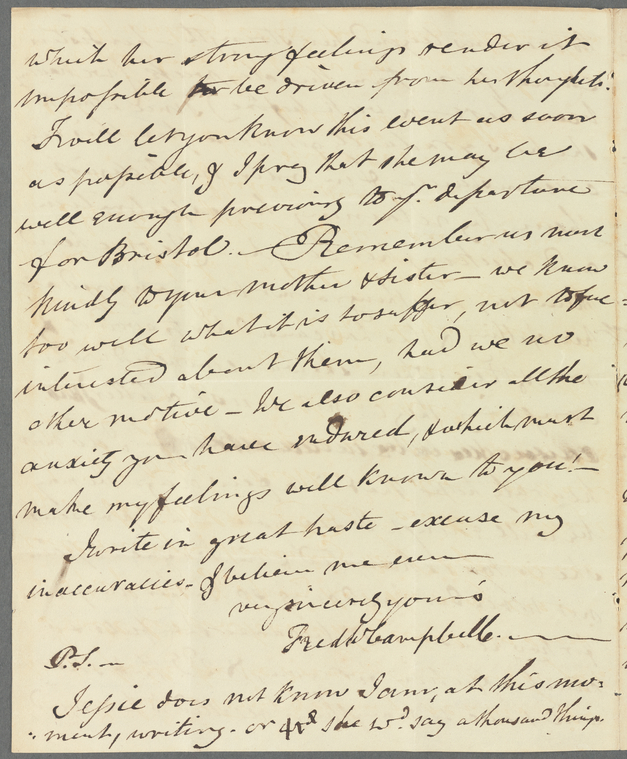 which her strong feelings render it
impossible to be driven from her thoughts.
I will let you know this event as soon
as possible, & I pray that she may be
well enough previous to yr. departure
for Bristol. — Remember us most
kindly to your mother & sister — we know
too well what it is to suffer, not to feel
interested about them, had we no
other motive — We also consider all the
anxiety you have endured, & which must
make my feelings well known to you! —
I write in great haste — excuse my
inaccuracies — & believe me ever
very sincerely yours
Fredk W Campbell. —
P.S. —
Jessie does not know I am, at this mo:
:ment, writing — or she wd. say a thousand things.